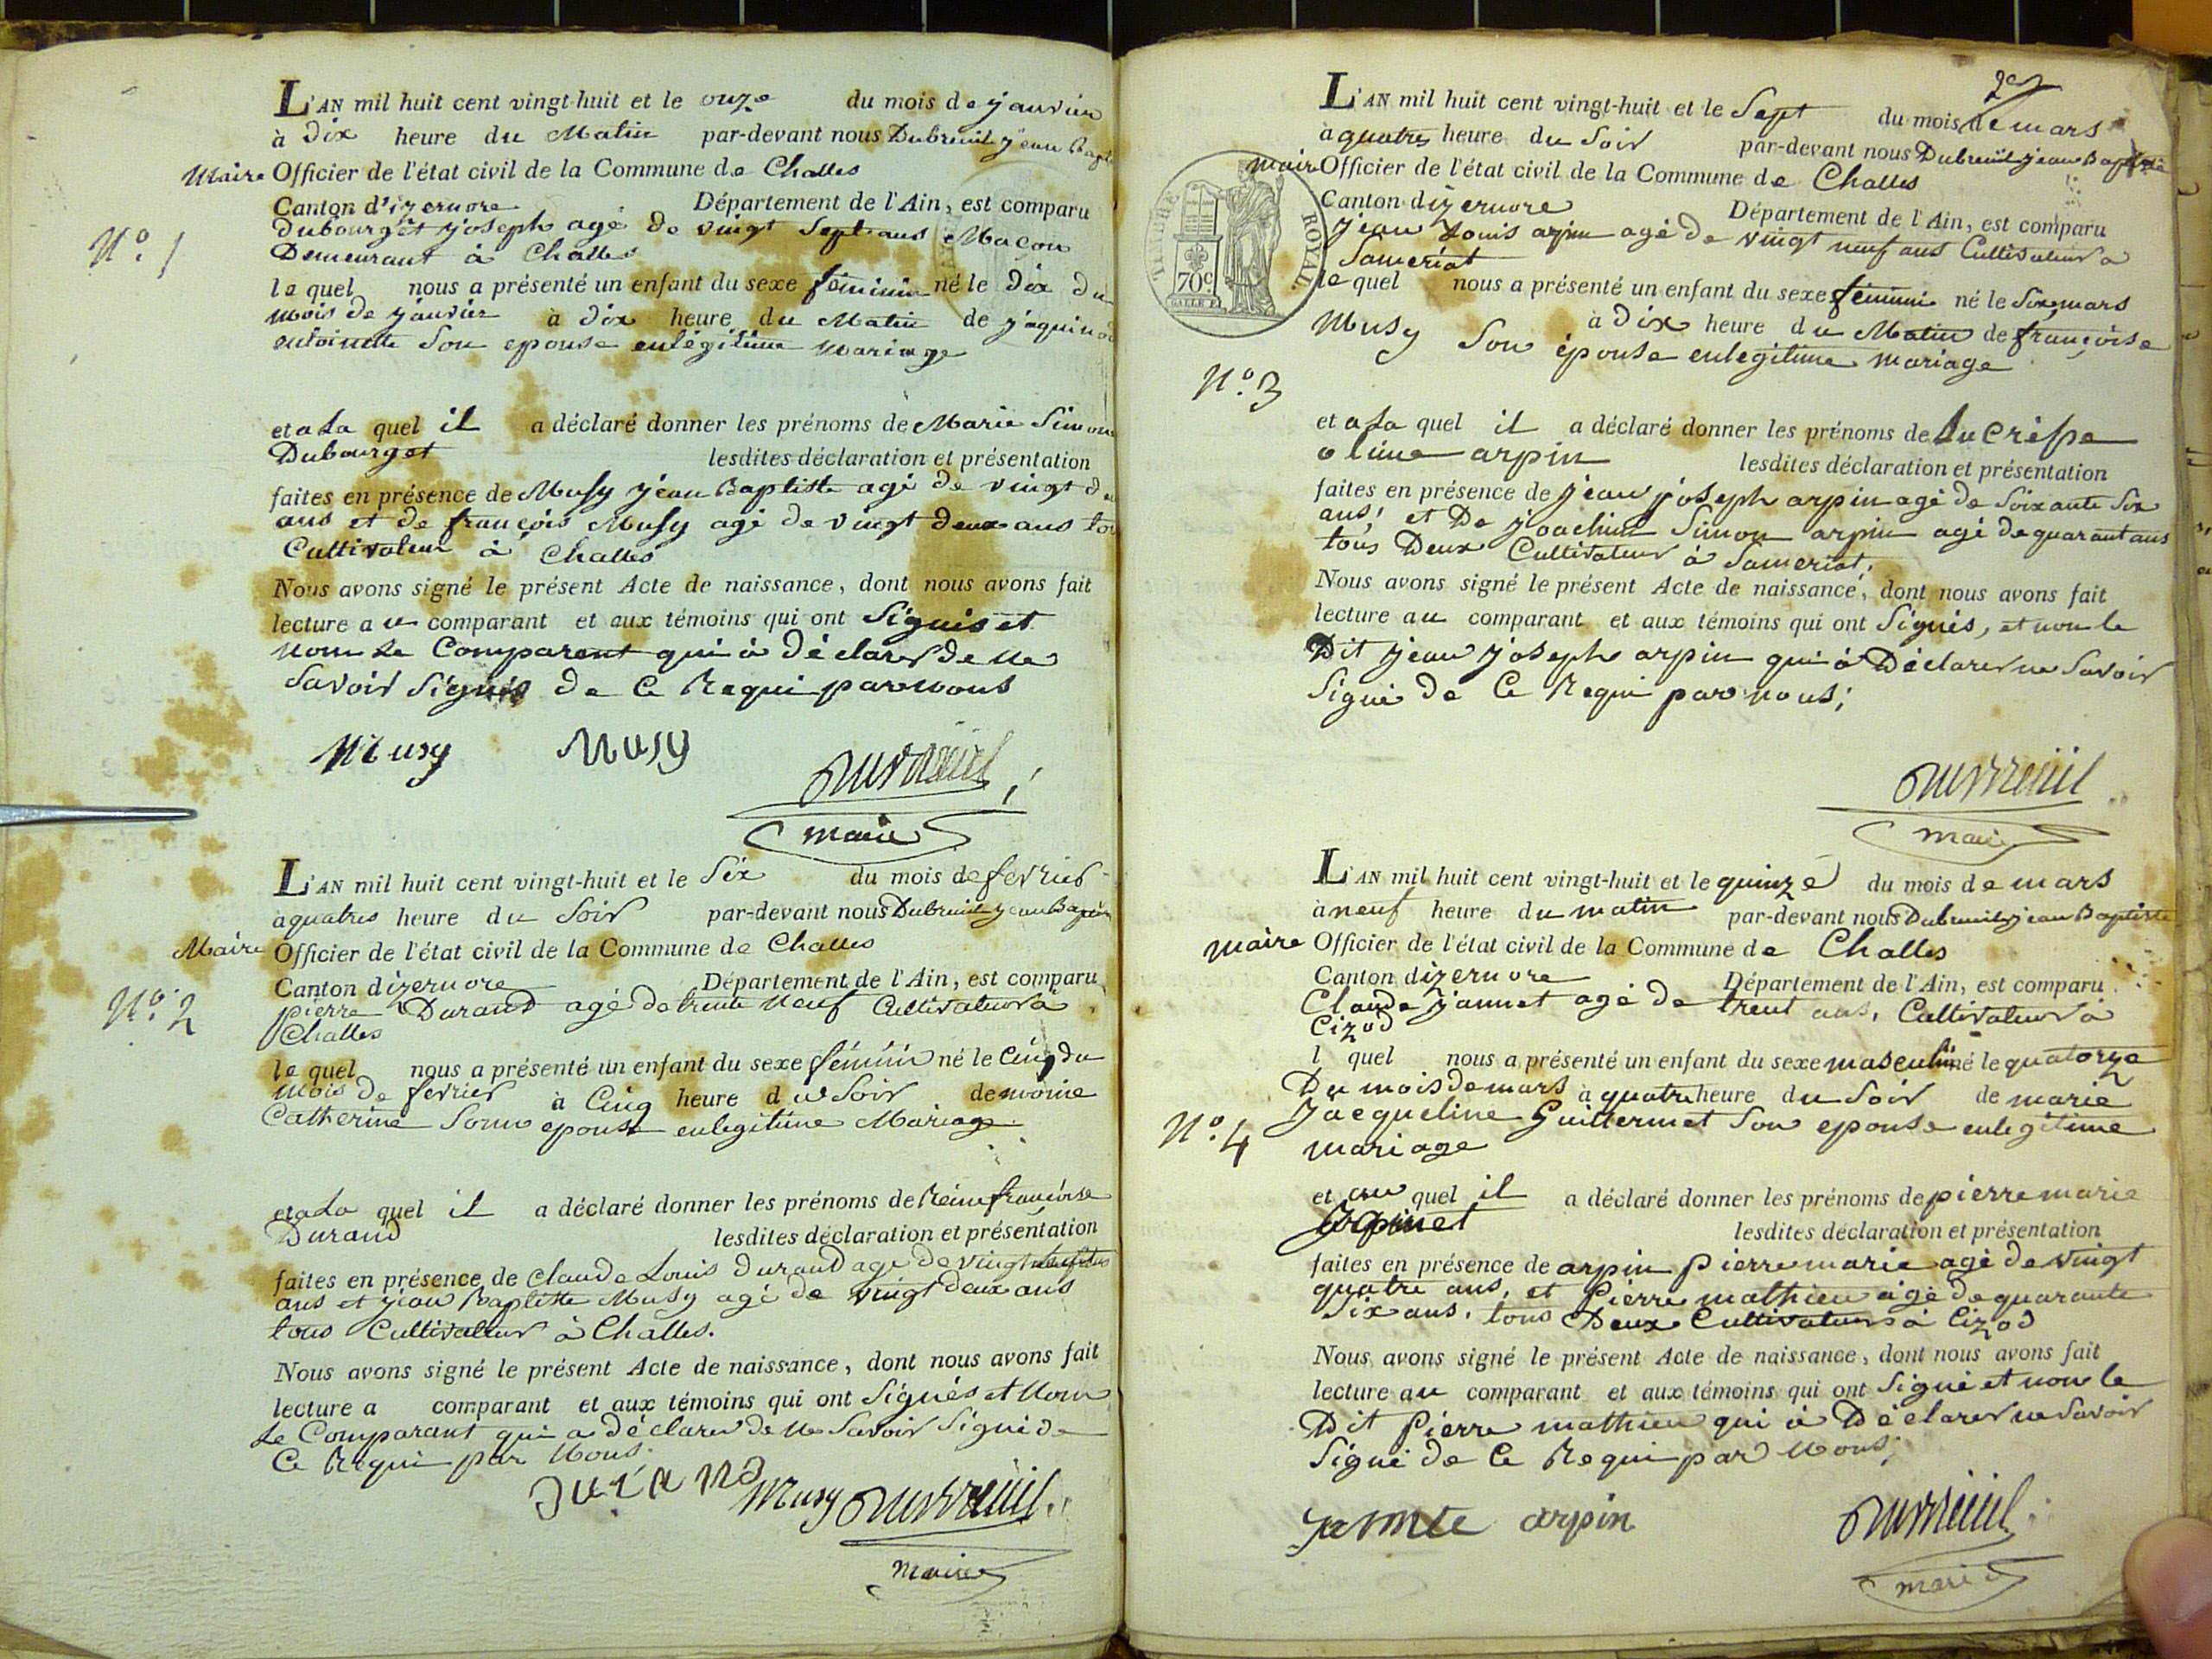 L'AN mil huit cent vingt-huit et le onze du mois de janvier
à dix heure du Matin par-devant nous Dubreuil jean Bapt
Maire Officier de l'état civil de la Commune de Challes
Canton d'izernore Département de l'Ain, est comparu
dubourget joseph agé de vingt Sept ans Maçon
N.° 1
Demeurant à Challes
le quel nous a présenté un enfant du sexe féminin né le dix du
mois de janvier à dix heure du Matin de
antoinette Son epouse enlégitime mariage
et a La quel il a déclaré donner les prénoms de Marie Simone
Dubourget lesdites déclaration et présentation
faites en présence de Musy jean Baptiste agé de vingt
ans et de françois Musy agé de vingt deux ans tous
Cultivateur à Challes
Nous avons signé le présent Acte de naissance, dont nous avons fait
lecture a u comparant et aux témoins qui ont Signés et
non Le Comparent qui à déclarer de ne
Savoir Signés de Ce Requi par nous
Musy Musy Dubreuil
maire
L'AN mil huit cent vingt-huit et le Six du mois de fevrier
à quatres heure du Soir par-devant nous Dubreuil jean Baptiste
Maire Officier de l'état civil de la Commune de Challes
Canton dizernore Département de l'Ain, est comparu
N.° 2
pierre Durand agé de trente neuf Cultivateur a
Challes
le quel nous a présenté un enfant du sexe féminin né le Cinq du
mois de fevrier à Cinq heure du Soir de marie
Catherine Sonn epouse enlegitime Mariage
et a La quel il a déclaré donner les prénoms de Reine françoise
Durand lesdites déclaration et présentation
faites en présence de Claude Louis durand age de vingt
ans et jean Baptiste Musy agé de vingt deux ans
tous Cultivateur à Challes.
Nous avons signé le présent Acte de naissance, dont nous avons fait
lecture a comparant et aux témoins qui ont Signés et Non
Le Comparant qui a déclarer de ne Savoir Signé de
Ce Requi par Nous.
durand Musy Dubreuil
maire
L'AN mil huit cent vingt-huit et le Sept du mois de mars
à quatres heure du Soir par-devant nous Dubreuil jean Baptiste
maire Officier de l'état civil de la Commune de Challes
Canton dizernore Département de l'Ain, est comparu
jean Louis arpin agé de vingt neuf ans Cultivateur a
Sameriat
TIMBRE ROYAL
70c
le quel nous a présenté un enfant du sexe féminin né le Six mars
à dix heure du Matin de françoise
Musy Son épouse enlegitime mariage
N.° 3
et a La quel il a déclaré donner les prénoms de Lucresse
olime arpin lesdites déclaration et présentation
faites en présence de jean joseph arpin agé de Soixante Six
ans, et De joachim Simon arpin agé de quarant ans
tous Deux Cultivateur à Sameriat.
Nous avons signé le présent Acte de naissance, dont nous avons fait
lecture au comparant et aux témoins qui ont Signés, et non le
Dit jean joseph arpin qui à Déclarer ne Savoir
Signé de Ce Requi par nous;
Dubreuil
maire
L'AN mil huit cent vingt-huit et le quinze du mois de mars
à neuf heure du matin par-devant nous Dubreuil jean Baptiste
maire Officier de l'état civil de la Commune de Challes
Canton dizernore Département de l'Ain, est comparu
Claude jannet agé de trent ans, Cultivateur à
Cizod
l quel nous a présenté un enfant du sexe masculin né le quatorze
Du mois de mars à quatre heure du Soir de marie
Jacqueline Guillermet Son epouse enlegitime
N.° 4
mariage
et au quel il a déclaré donner les prénoms de pierre marie
lesdites déclaration et présentation
faites en présence de arpin pierre marie agé de vingt
quatre ans, et pierre mathieu agé de quarante
Six ans, tous Deux Cultivateurs à Cizod
Nous avons signé le présent Acte de naissance, dont nous avons fait
lecture au comparant et aux témoins qui ont Signé et non le
Dit Pierre mathieu qui à Déclarer ne Savoir
Signé de Ce Requi par Nous;
arpin Dubreuil
maire